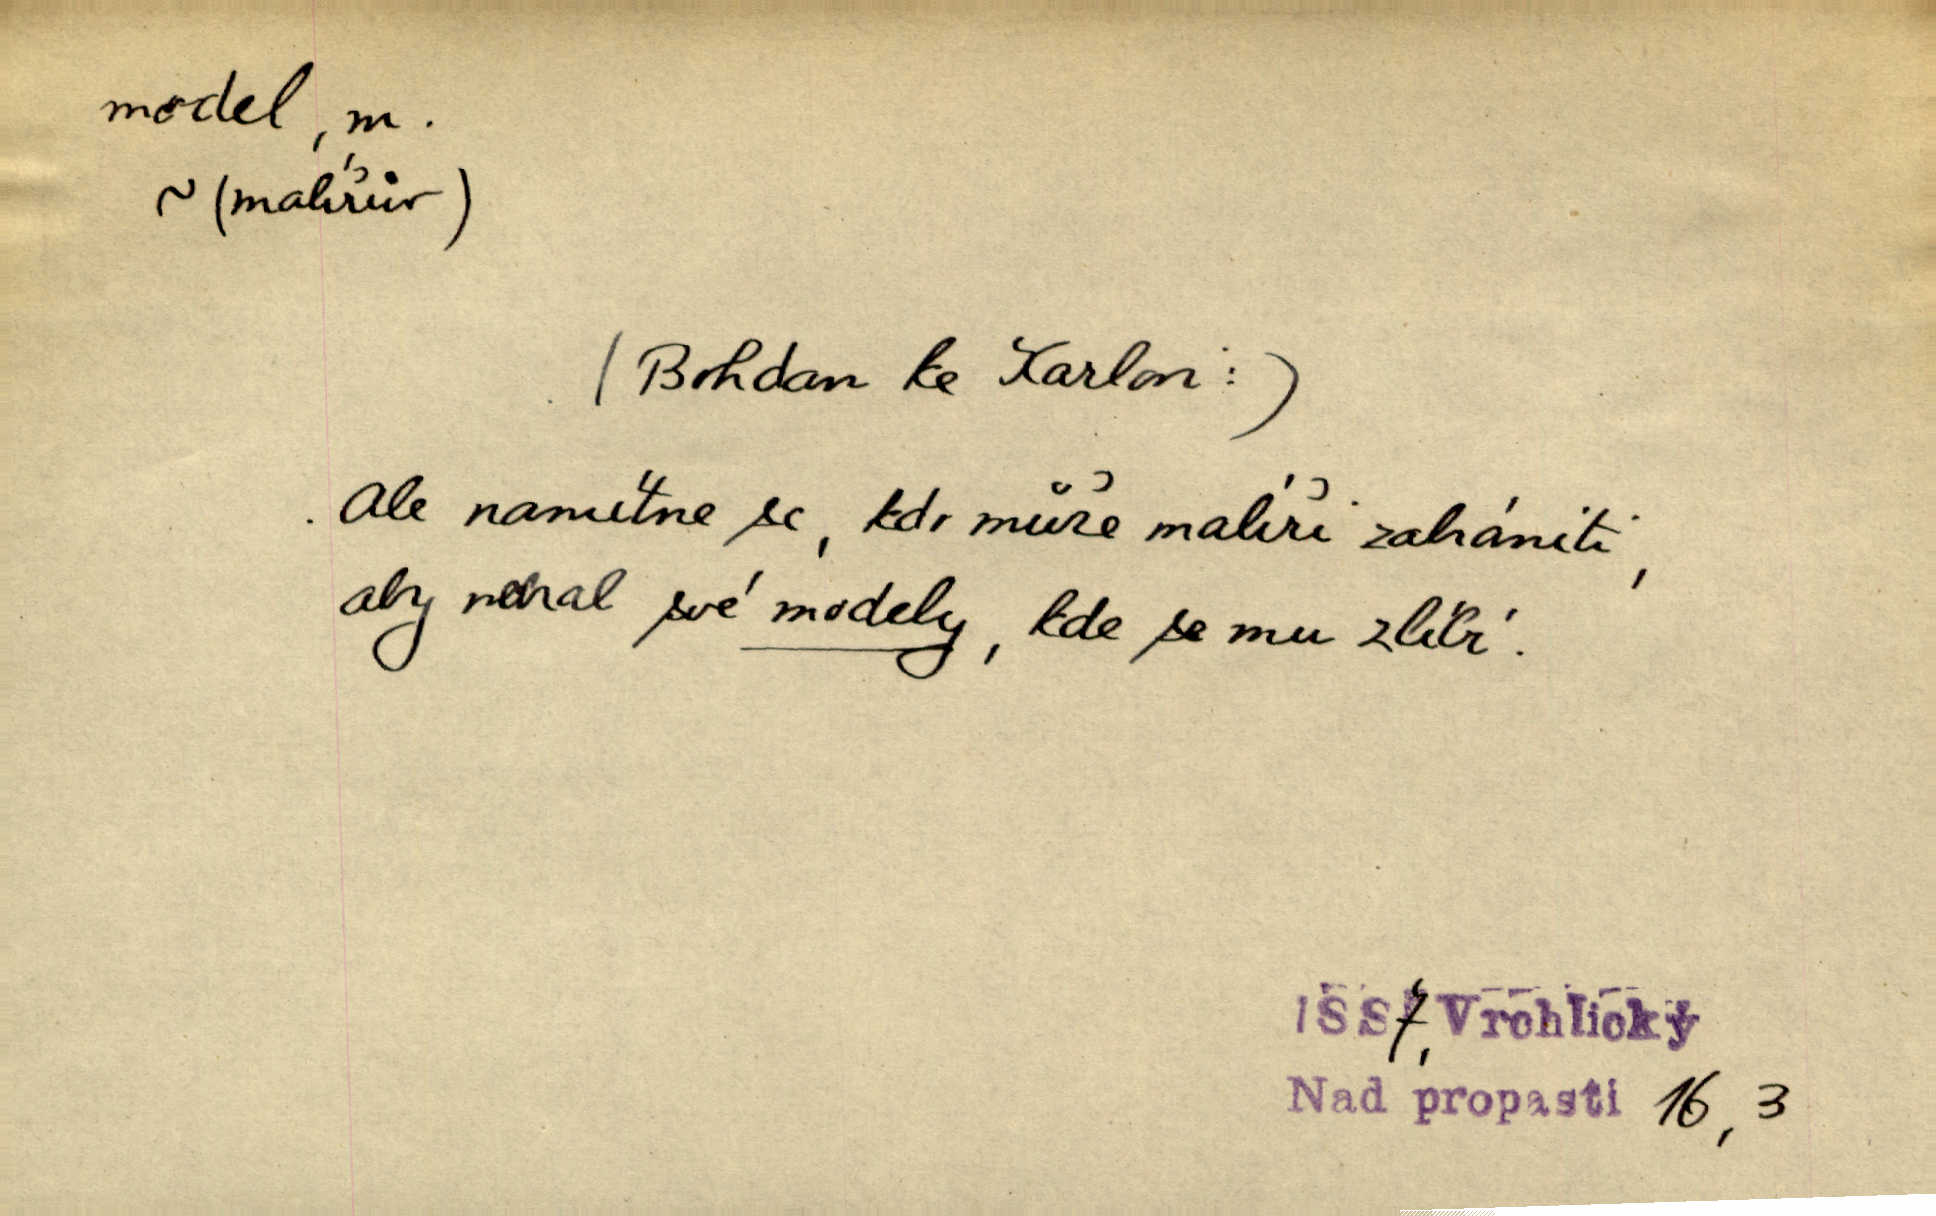 model, m.
~ (malířův)
(Bohdan ke Karlovi:)
Ale namítne se, kdo může malíři zabrániti,
aby nebral své modely, kde se mu zlíbí.
Vrchlický
Nad propastí 16, 3